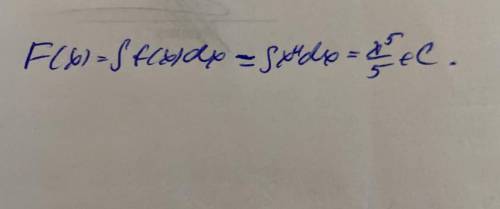 F(x) = ∫f(x)dx = ∫x⁴dx = x⁵/5 + C.